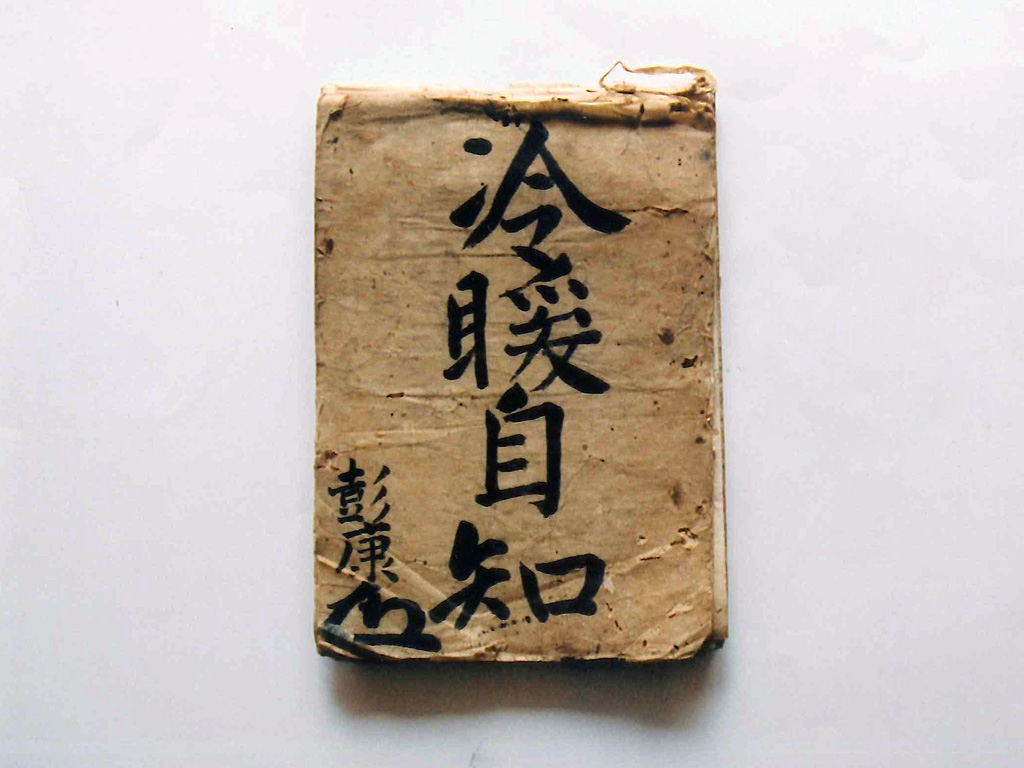 冷暖自知
彭康